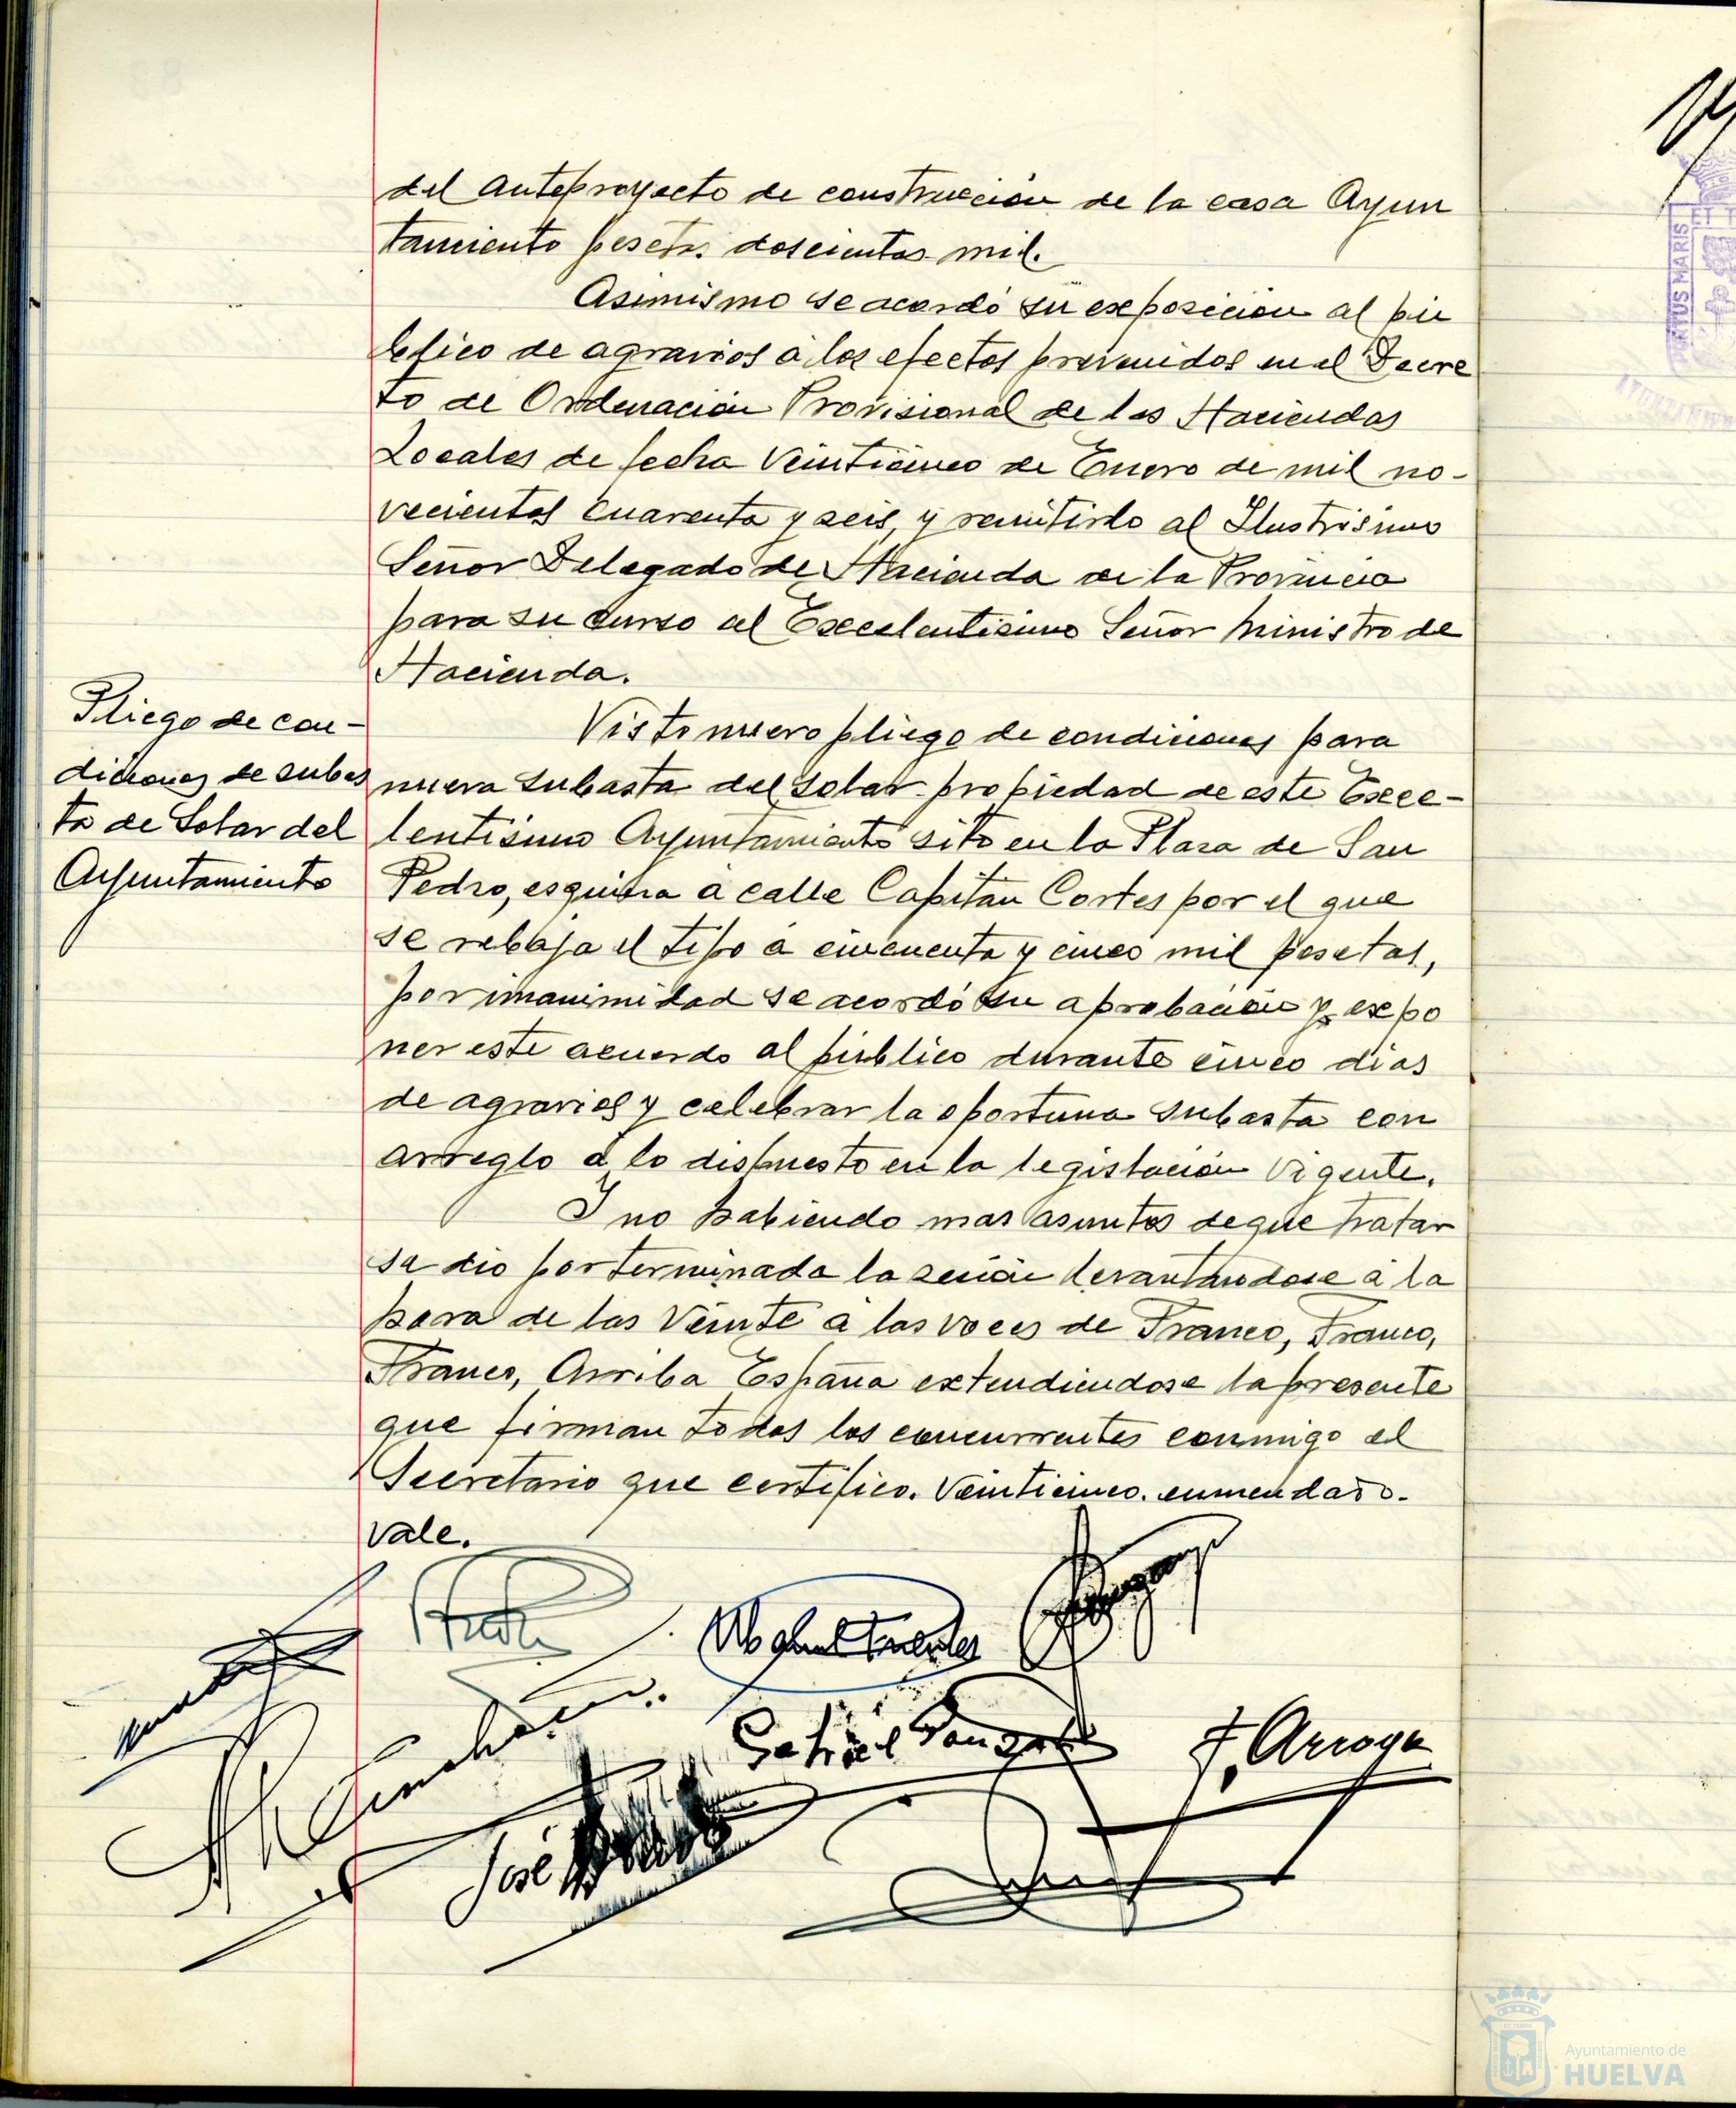 del anteproyecto de construccion de la casa Ayun
tamiento pesetas doscientas mil.
Asimismo se acordó su exposicion al pú
blico de agravios a los efectos prevenidos en el Decre
to de Ordenación Provisional de las Haciendas
Locales de fecha Veinticinco de Enero de mil no-
vecientos cuarenta y seis, y remitirlo al Ilustrisimo
Señor Delegado de Hacienda de la Provincia
para su curso al Excelentisimo Señor Ministro de
Hacienda.
Pliego de con-
diciones de subas
ta de Solar del
Ayuntamiento
Visto nuevo pliego de condiciones para
nueva subasta del solar propiedad de este Exce-
lentisimo Ayuntamiento sito en la Plaza de San
Pedro, esquina a calle Capitan Cortes por el que
se rebaja el tipo a cincuenta y cinco mil pesetas,
por unanimidad se acordó su aprobación y expo
ner este acuerdo al público durante cinco dias
de agravios y celebrar la oportuna subasta con
arreglo a lo dispuesto en la legislación vigente.
Y no habiendo mas asuntos de que tratar
se dio por terminada la sesión levantandose a la
hora de las Veinte a las voces de Franco, Franco,
Franco, Arriba España extendiendose la presente
que firman todos los concurrentes conmigo el
Secretario que certifico. Veinticinco. enmendado.
Vale.
F. Arroyo
José
ET T
RTUS MARIS
AYUNTAMIEN
Ayuntamiento de
HUELVA